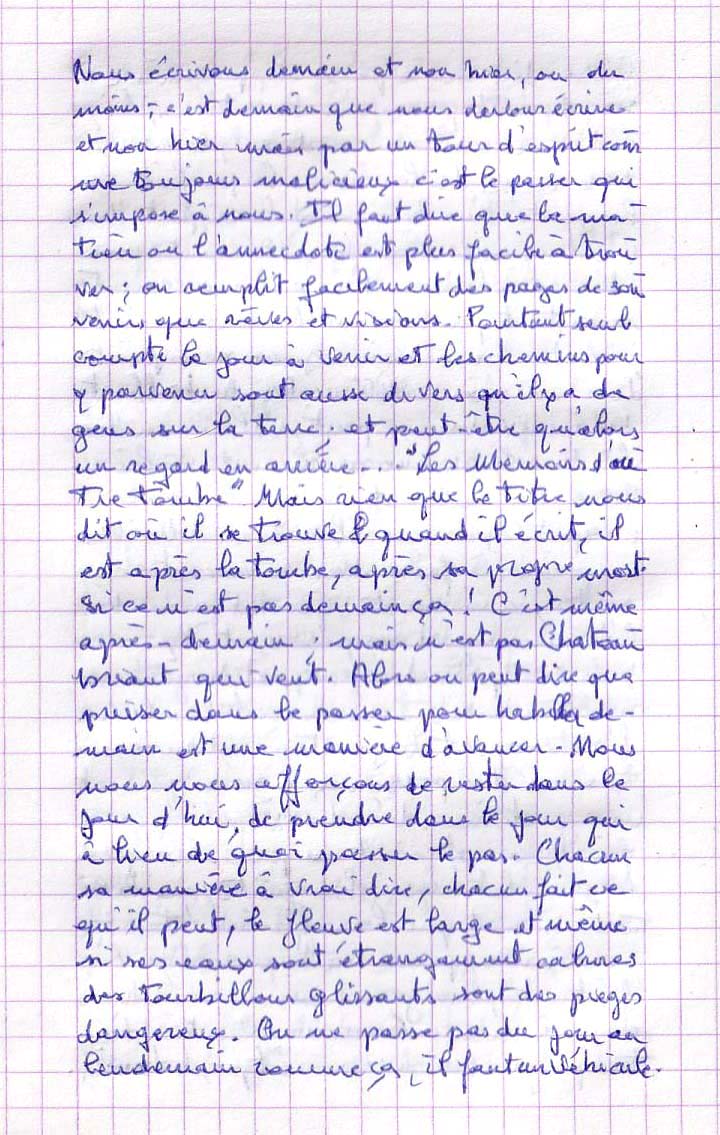 Nous écrivons demain et non hier, ou du
moins, c'est demain que nous devons écrire
et non hier mais par un tour d'esprit com
me toujours malicieux c'est le passer qui
s'impose à nous. Il faut dire que la ma-
tière ou l'annecdote est plus facile à trou
ver ; on remplit facilement des pages de sou
venirs que rêves et visions. Pourtant seul
compte le jour à venir et les chemins pour
y parvenir sont aussi divers qu'il y a de
gens sur la terre, et peut-être qu'alors
un regard en arrière... "Les Memoires d'ou
tre tombe" Mais rien que le titre nous
dit où il se trouve quand il écrit, il
est après la tombe, après sa propre mort.
Si ce n'est pas demain ça ! C'est même
après-demain, mais n'est pas Chateau
briant qui veut. Alors on peut dire que
puiser dans le passer pour habiller de-
main est une manière d'avancer. Nous
nous nous efforçons de rester dans le
jour d'hui, de prendre dans le jour qui
a lieu de quoi passer le pas. Chacun
sa manière à vrai dire, chacun fait ce
qu'il peut, le fleuve est large et même
si ses eaux sont étrangement calmes
des tourbillons glissants sont des pieges
dangereux. On ne passe pas du jour au
lendemain comme ça, il faut un véhicule.